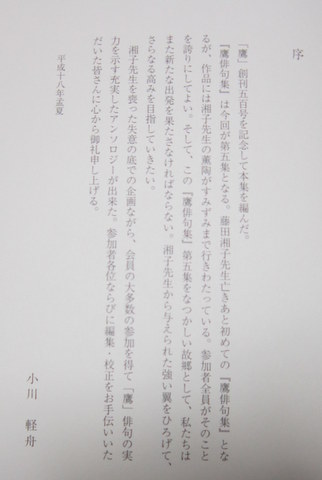 序
「鷹」創刊五百号を記念して本集を編んだ。
『鷹俳句集』は今回が第五集となる。藤田湘子先生亡きあと初めての『鷹俳句集』とな
るが、作品には湘子先生の薫陶がすみずみまで行きわたっている。参加者全員がそのこと
を誇りにしてよい。そして、この『鷹俳句集』第五集をなつかしい故郷として、私たちは
また新たな出発を果たさなければならない。湘子先生から与えられた強い翼をひろげて、
さらなる高みを目指していきたい。
湘子先生を喪った失意の底での企画ながら、会員の大多数の参加を得て「鷹」俳句の実
力を示す充実したアンソロジーが出来た。参加者各位ならびに編集・校正をお手伝いいた
だいた皆さんに心から御礼申し上げる。
平成十八年孟夏
小川軽舟